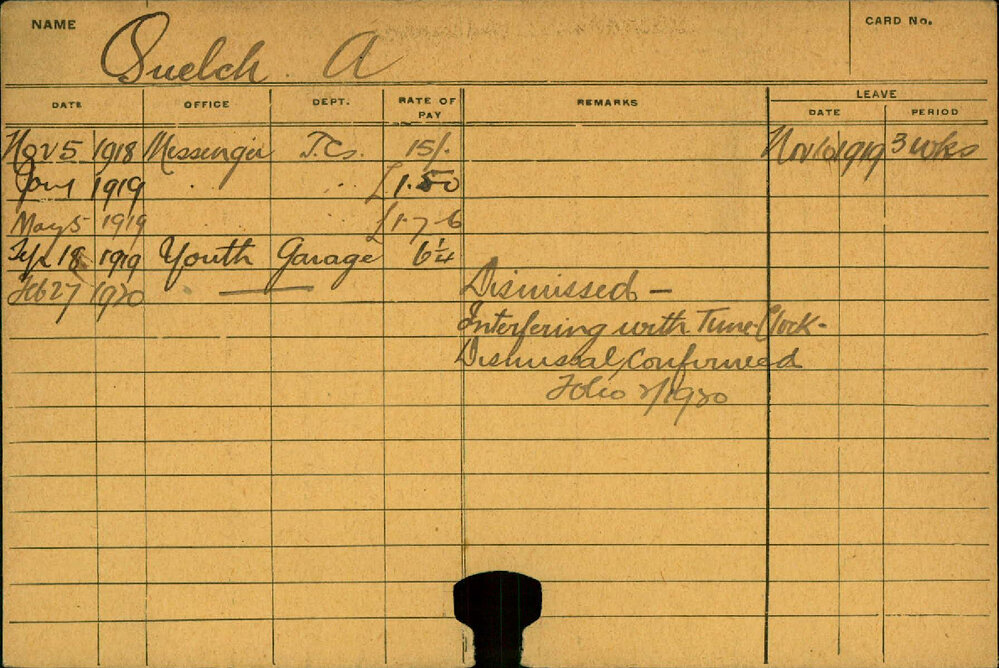 NAME
Quelch A
CARD No.
DATE OFFICE DEPT. RATE OF PAY REMARKS LEAVE
DATE PERIOD
Nov 5 1918 Messenger T.Cs. 15/- Nov 10 1919 3 wks
Jany 1919 " " £1.5.0
May 5 1919 £1-7-6
Sep 18 1919 Youth Garage 6¼
Feb 27 1920 " — Dismissed —
Interfering with Time-Clock-
Dismissal Confirmed
Folio 2/1920